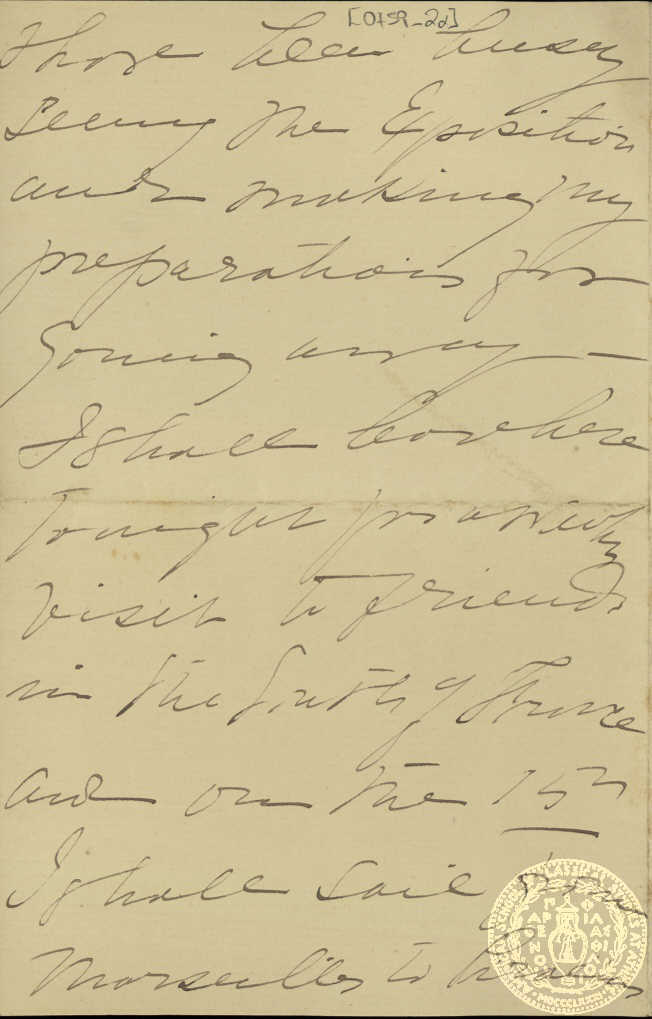 [OTSP_2d]
I have been busy
seeing the Exposition
and making my
preparations for
going away —
I shall leave here
tonight for a week's
visit to friends
in the South of France
and on the 15th
I shall sail from
Marseilles to Piraeus